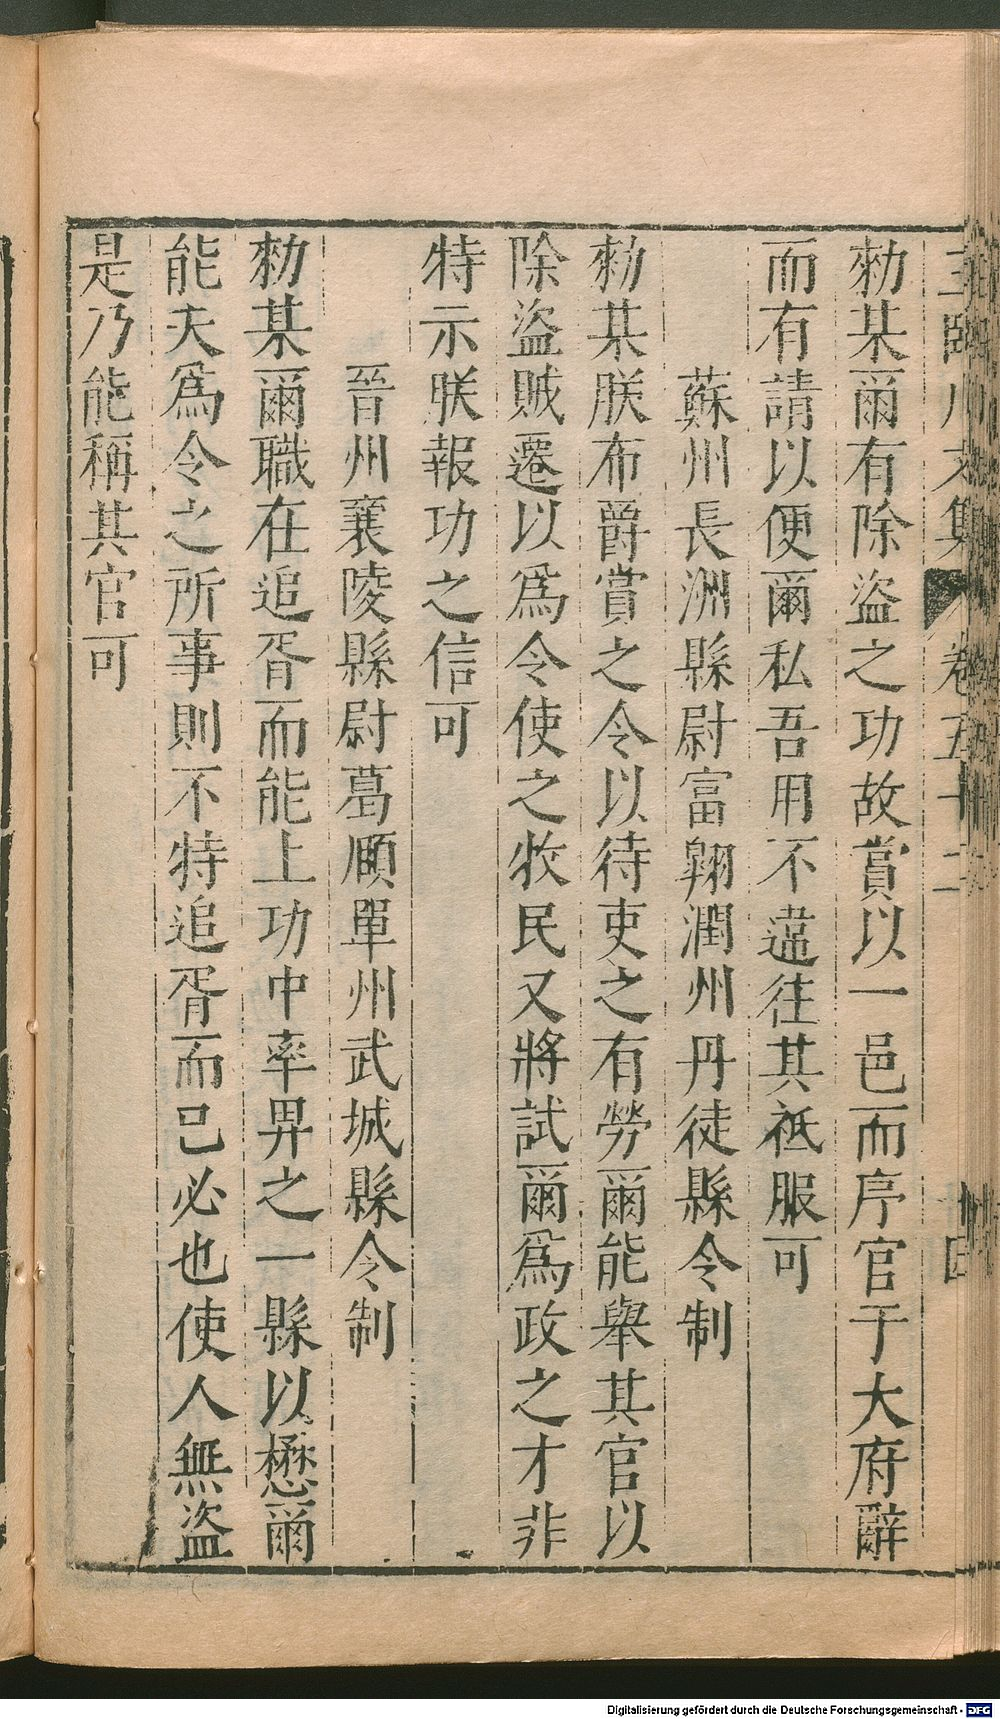 文集 卷五十二
勑某爾有除盜之功故賞以一邑而序官于大府辭
而有請以便爾私吾用不違往其祗服可
蘇州長洲縣尉富翱潤州丹徒縣令制
勑某朕布爵賞之令以待吏之有勞爾能舉其官以
除盜賊遷以為令使之牧民又將試爾為政之才非
特示朕報功之信可
晉州襄陵縣尉葛頋單州武城縣令制
勑某爾職在追胥而能上功中率畀之一縣以懋爾
能夫為令之所事則不特追胥而已必也使人無盜
是乃能稱其官可
Digitalisierung gefördert durch die Deutsche Forschungsgemeinschaft - DFG